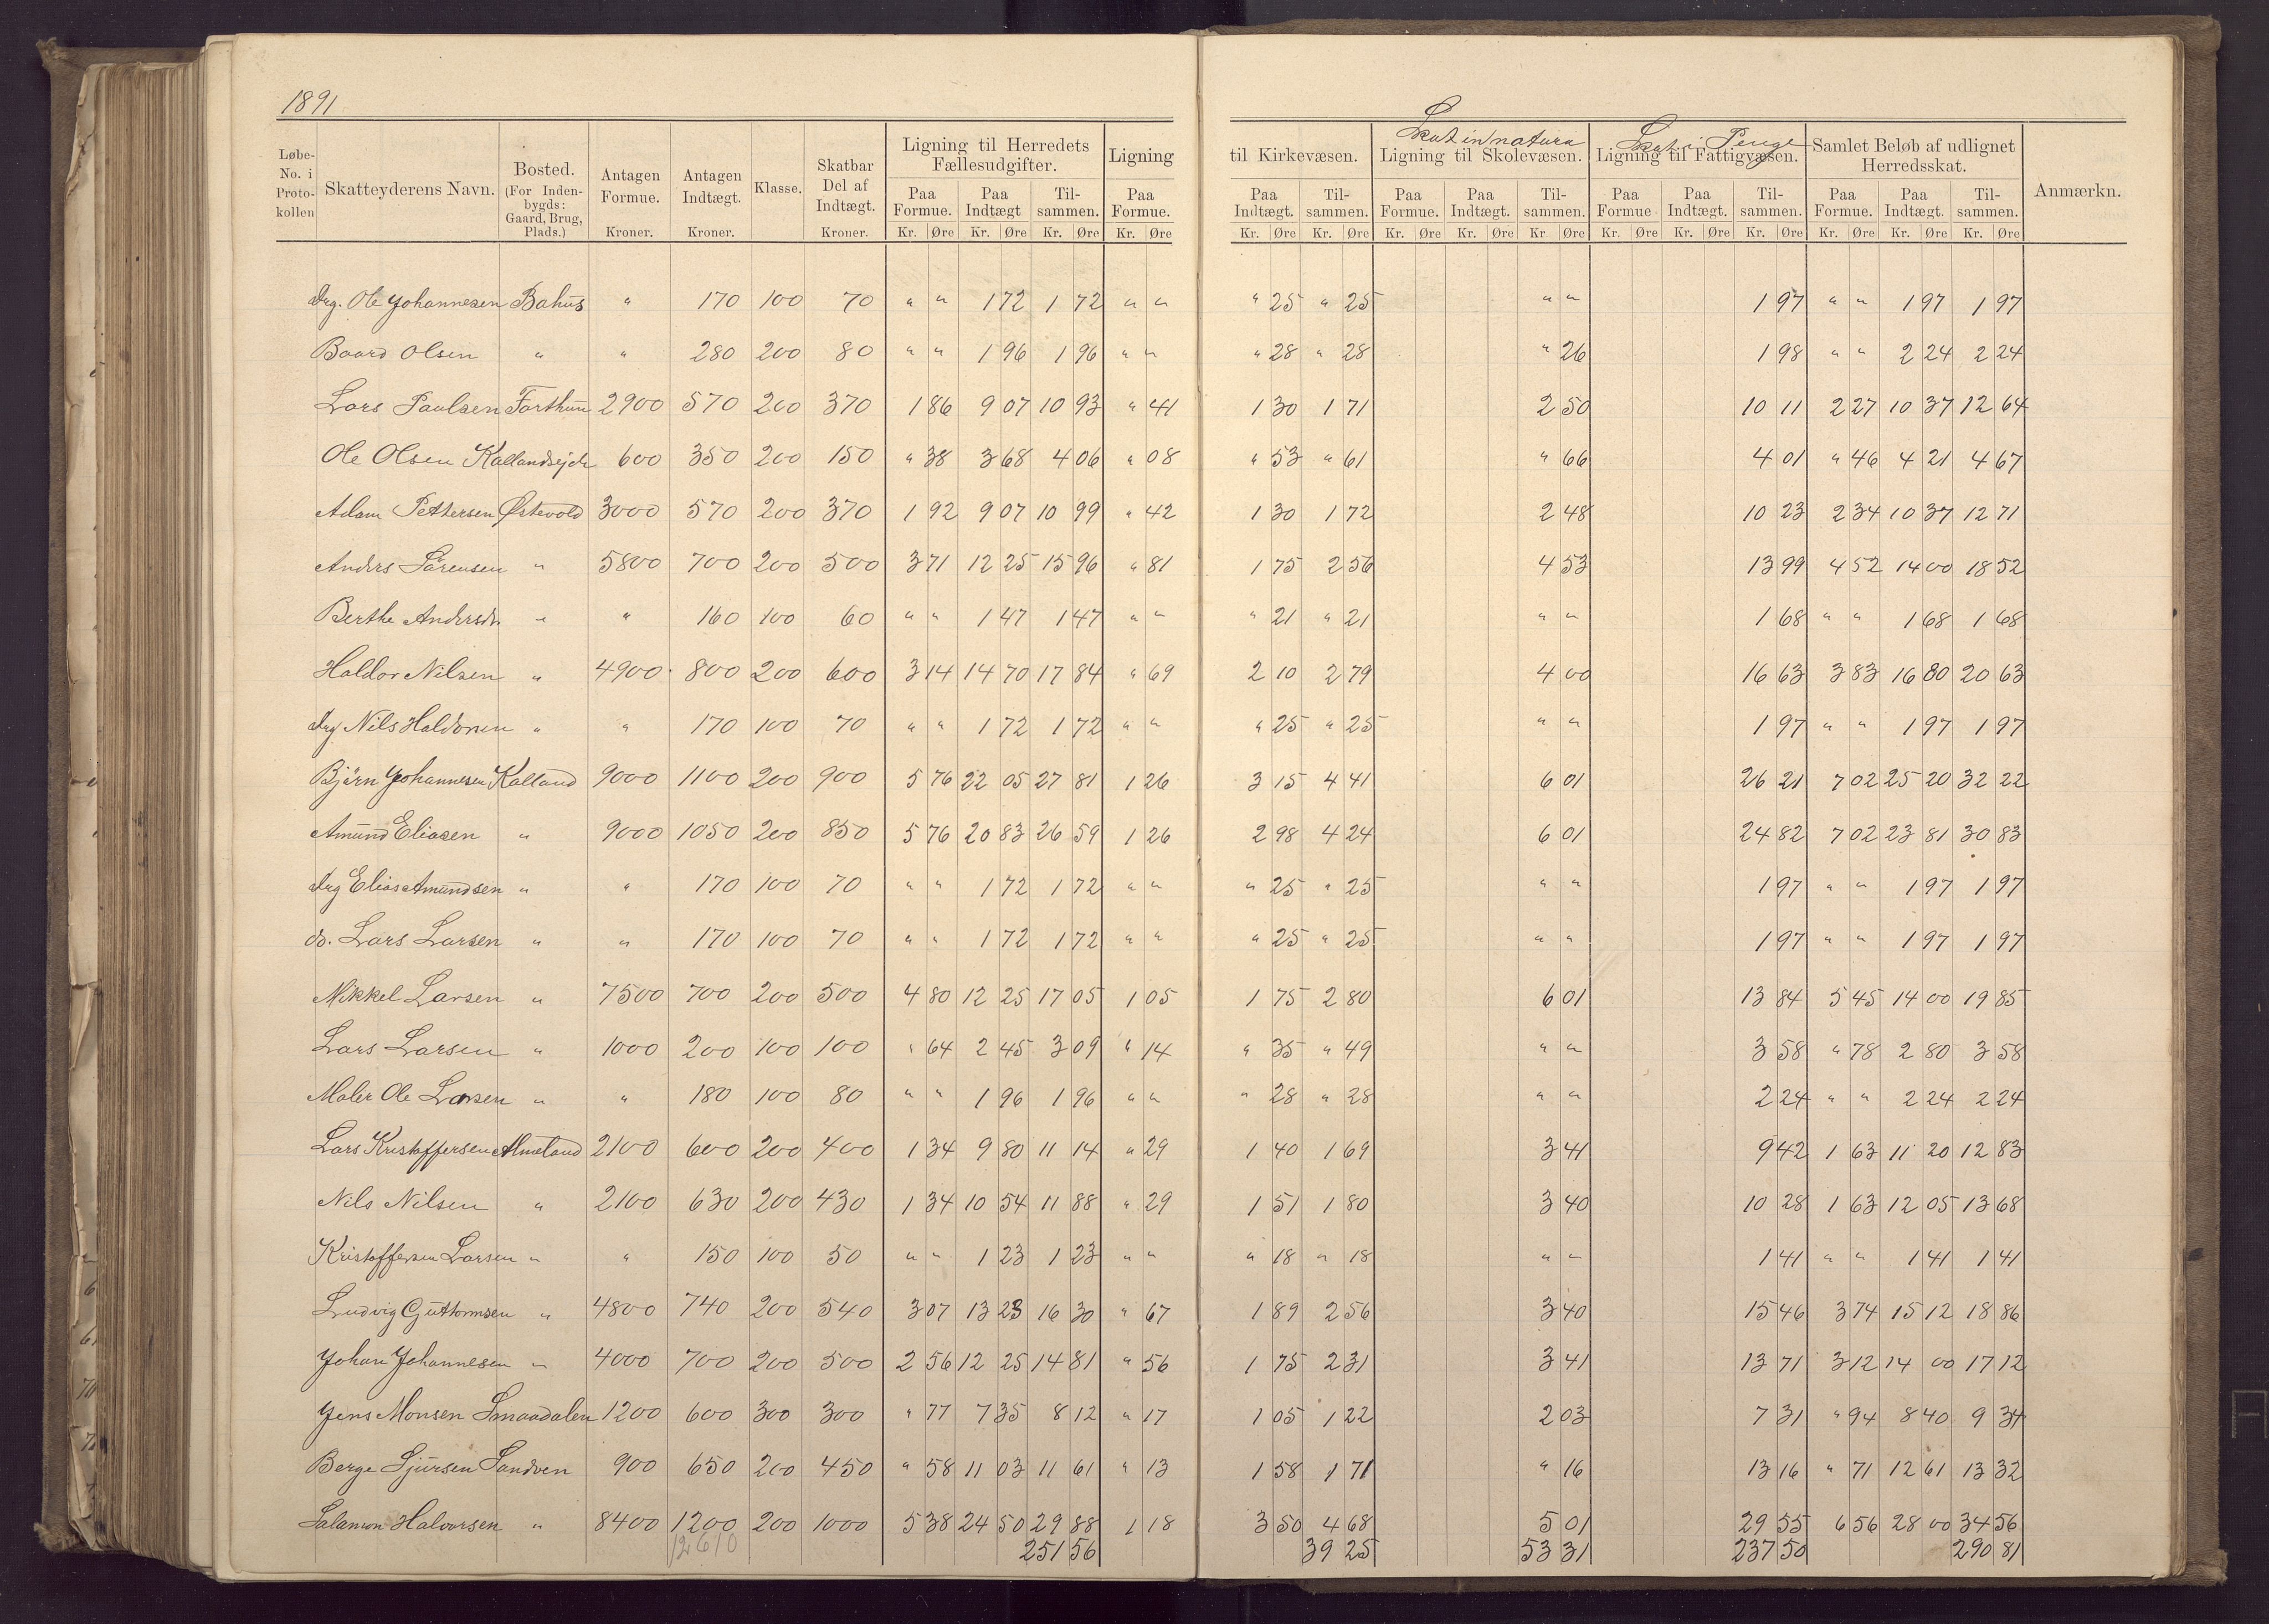 1891
Løbe-No. i Proto-kollen | Skatteyderens Navn. | Bosted. (For Inden-bygds: Gaard, Brug, Plads.) | Antagen Formue. Kroner. | Antagen Indtægt. Kroner. | Klasse. | Skatbar Del af Indtægt. Kroner. | Ligning til Herredets Fællesudgifter. | Ligning | til Kirkevæsen. | Skat in natura Ligning til Skolevæsen. | Skat i Penge Ligning til Fattigvæsen. | Samlet Beløb af udlignet Herredsskat. | Anmærkn.
Paa Formue. | Paa Indtægt | Til-sammen. | Paa Formue. | Paa Indtægt. | Til-sammen. | Paa Formue. | Paa Indtægt. | Til-sammen. | Paa Formue | Paa Indtægt. | Til-sammen. | Paa Formue. | Paa Indtægt. | Til-sammen.
Kr. Øre Kr. Øre Kr. Øre Kr. Øre Kr. Øre Kr. Øre Kr. Øre Kr. Øre Kr. Øre Kr. Øre Kr. Øre Kr. Øre Kr. Øre Kr. Øre Kr. Øre
Drg. Ole Johannesen Bahus " 170 100 70 " " 1 72 1 72 " " " 25 " 25 " " 1 97 " " 1 97 1 97
Baard Olsen " " 280 200 80 " " 1 96 1 96 " " " 28 " 28 " 26 1 98 " " 2 24 2 24
Lars Paulsen Forthun 2900 570 200 370 1 86 9 07 10 93 " 41 1 30 1 71 2 50 10 11 2 27 10 37 12 64
Ole Olsen Kallandsejde 600 350 200 150 " 38 3 68 4 06 " 08 " 53 " 61 " 66 4 01 " 46 4 21 4 67
Adam Pettersen Østevold 3000 570 200 370 1 92 9 07 10 99 " 42 1 30 1 72 2 48 10 23 2 34 10 37 12 71
Anders Sørensen " 5800 700 200 500 3 71 12 25 15 96 " 81 1 75 2 56 4 53 13 99 4 52 14 00 18 52
Berthe Andersdr. " " 160 100 60 " " 1 47 1 47 " " " 21 " 21 " " 1 68 " " 1 68 1 68
Haldor Nilsen " 4900 800 200 600 3 14 14 70 17 84 " 69 2 10 2 79 4 00 16 63 3 83 16 80 20 63
Drg Nils Haldorsen " " 170 100 70 " " 1 72 1 72 " " " 25 " 25 " " 1 97 " " 1 97 1 97
Bjørn Johannesen Kalland 9000 1100 200 900 5 76 22 05 27 81 1 26 3 15 4 41 6 01 26 21 7 02 25 20 32 22
Amund Eliasen " 9000 1050 200 850 5 76 20 83 26 59 1 26 2 98 4 24 6 01 24 82 7 02 23 81 30 83
Drg Elias Amundsen " " 170 100 70 " " 1 72 1 72 " " " 25 " 25 " " 1 97 " " 1 97 1 97
do. Lars Larsen " " 170 100 70 " " 1 72 1 72 " " " 25 " 25 " " 1 97 " " 1 97 1 97
Mikkel Larsen " 7500 700 200 500 4 80 12 25 17 05 1 05 1 75 2 80 6 01 13 84 5 45 14 00 19 85
Lars Larsen " 1000 200 100 100 " 64 2 45 3 09 " 14 " 35 " 49 " " 3 58 " 78 2 80 3 58
Maler Ole Larsen " " 180 100 80 " " 1 96 1 96 " " " 28 " 28 " " 2 24 " " 2 24 2 24
Lars Kristoffersen Almeland 2100 600 200 400 1 34 9 80 11 14 " 29 1 40 1 69 3 41 9 42 1 63 11 20 12 83
Nils Nilsen " 2100 630 200 430 1 34 10 54 11 88 " 29 1 51 1 80 3 40 10 28 1 63 12 05 13 68
Kristoffersen Larsen " " 150 100 50 " " 1 23 1 23 " " " 18 " 18 " " 1 41 " " 1 41 1 41
Ludvig Guttormsen " 4800 740 200 540 3 07 13 23 16 30 " 67 1 89 2 56 3 40 15 46 3 74 15 12 18 86
Johan Johannesen " 4000 700 200 500 2 56 12 25 14 81 " 56 1 75 2 31 3 41 13 71 3 12 14 00 17 12
Jens Monsen Smaadalen 1200 600 300 300 " 77 7 35 8 12 " 17 1 05 1 22 2 03 7 31 " 94 8 40 9 34
Berge Sjursen Sandven 900 650 200 450 " 58 11 03 11 61 " 13 1 58 1 71 " 16 13 16 " 71 12 61 13 32
Salamon Halvorsen " 8400 1200 200 1000 5 38 24 50 29 88 1 18 3 50 4 68 5 01 29 55 6 56 28 00 34 56
12610 251 56 39 25 53 31 237 50 290 81